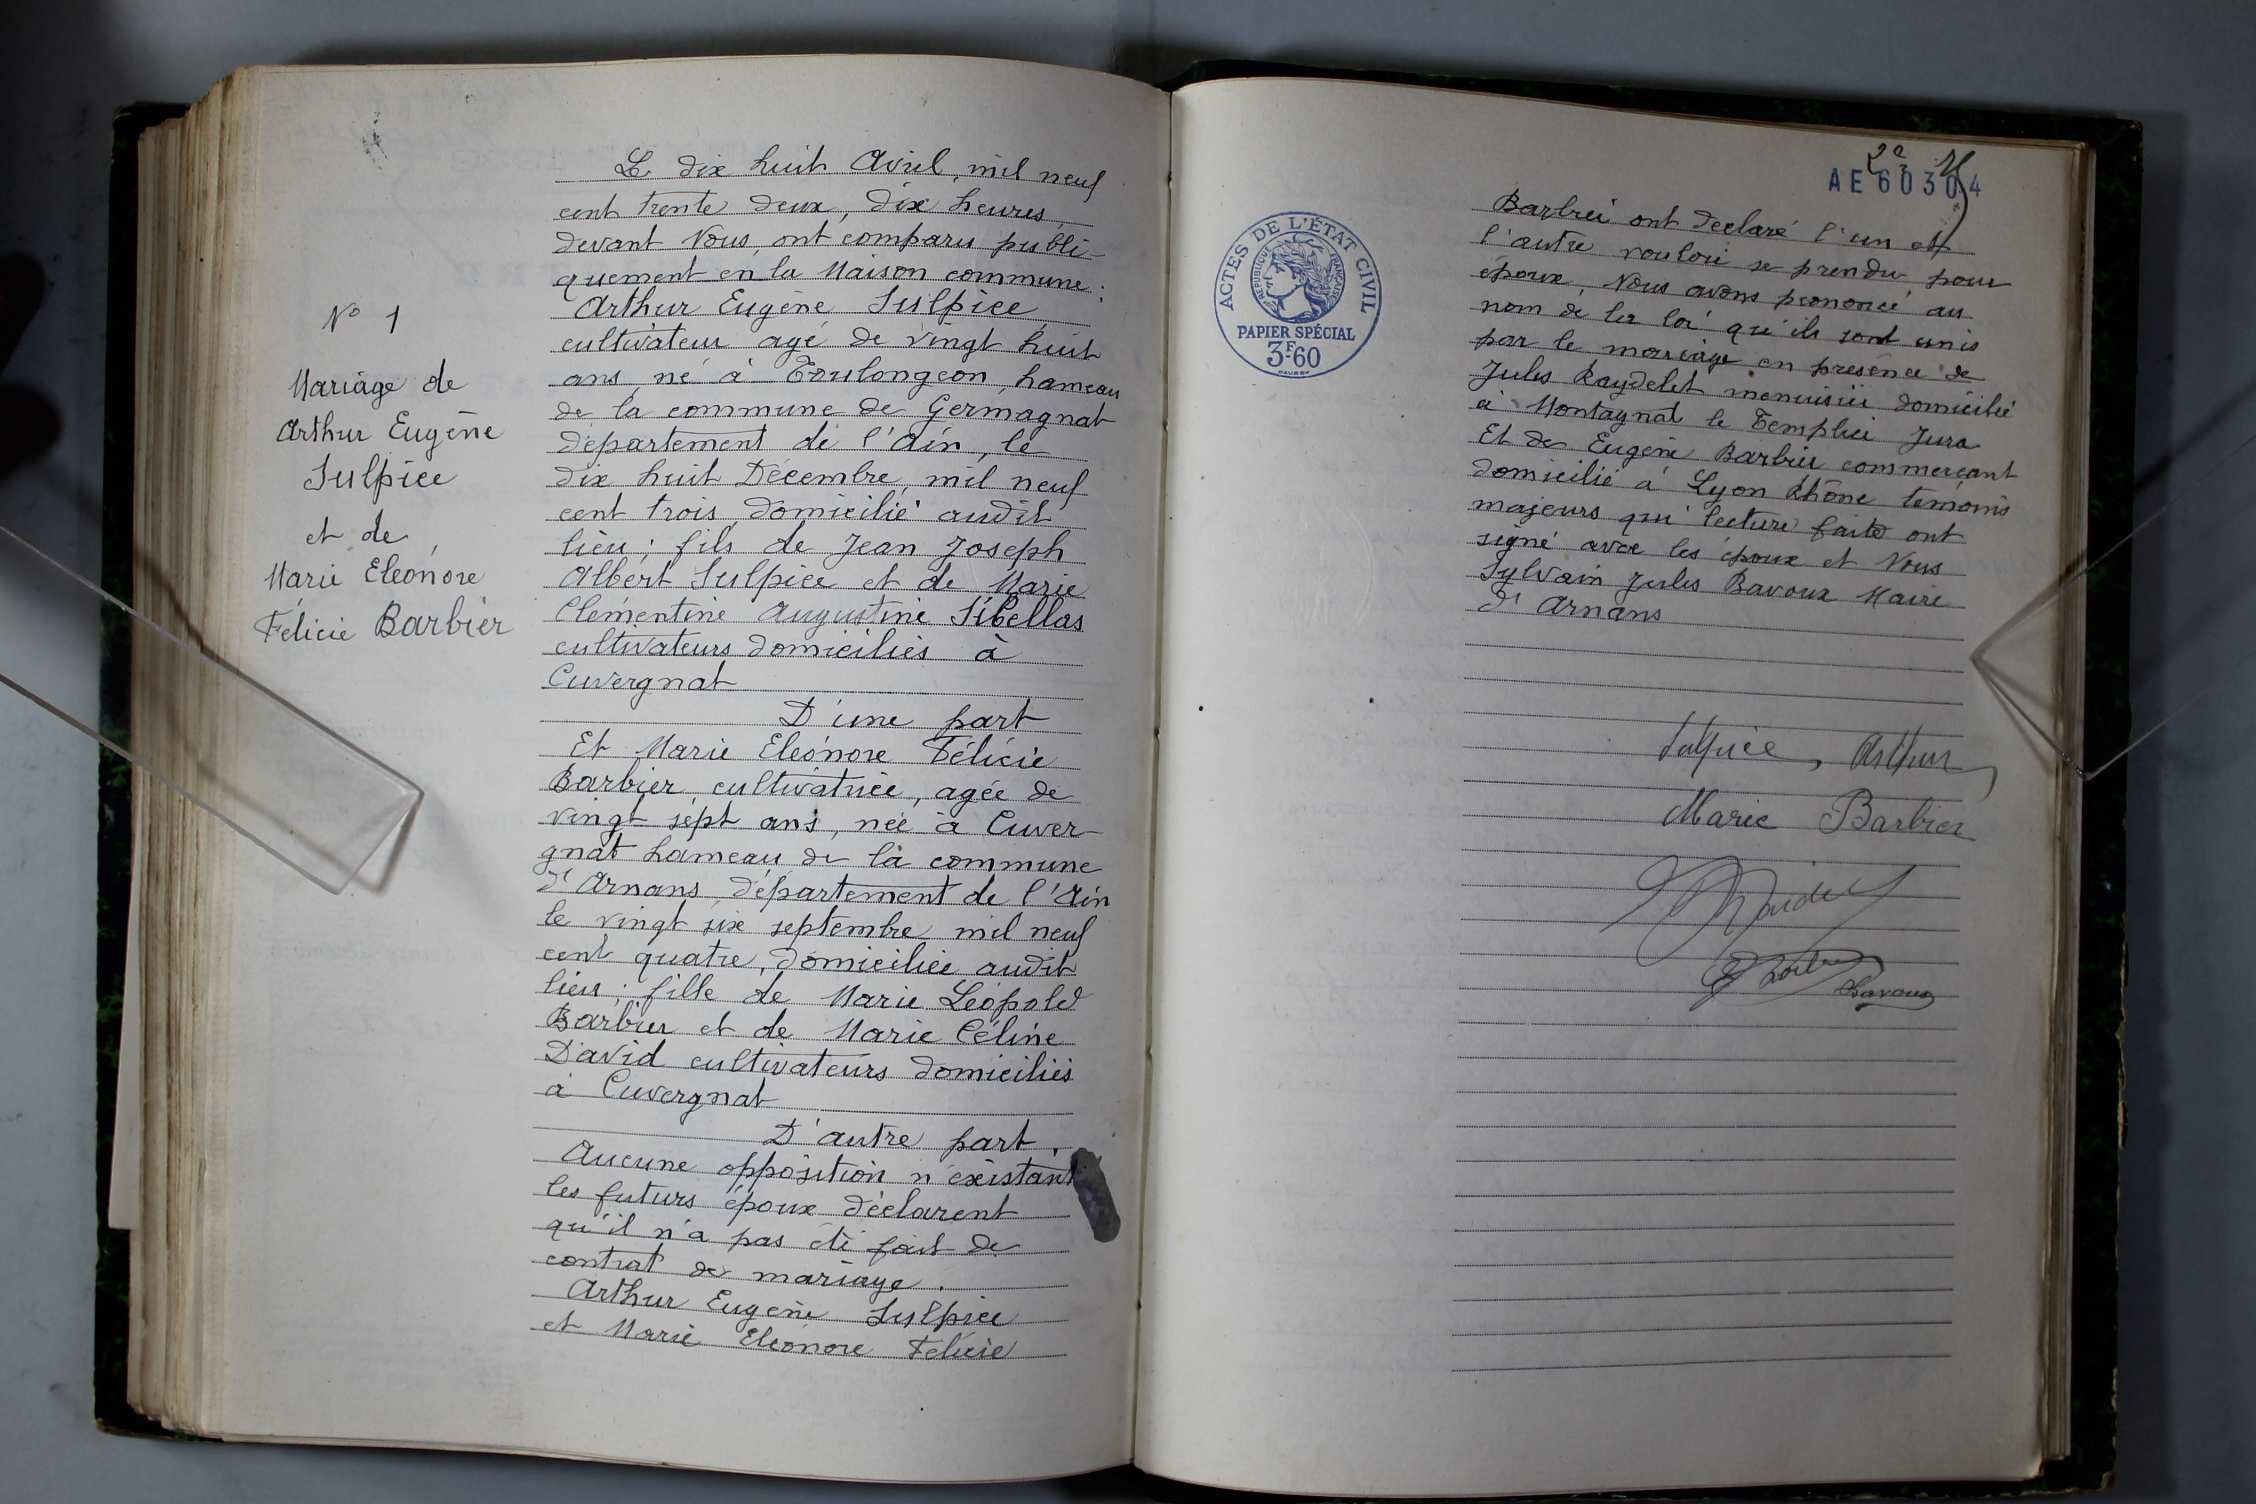 N° 1
Mariage de
Arthur Eugène
Sulpice
et de
Marie Eléonore
Félicie Barbier
Le dix huit Avril, mil neuf
cent trente deux, dix heures
devant Nous, ont comparu publi-
quement en la Maison commune :
Arthur Eugène Sulpice
cultivateur agé de vingt huit
ans, né à Toulongeon, hameau
de la commune de Germagnat
département de l'Ain, le
dix huit Décembre, mil neuf
cent trois, domicilié audit
lieu ; fils de Jean Joseph
Albert Sulpice et de Marie
Clémentine Augustine Sibellas
cultivateurs domiciliés à
Cuvergnat
D'une part
Et Marie Eléonore Félicie
Barbier, cultivatrice, agée de
vingt sept ans, née à Cuver-
gnat hameau de la commune
d'Arnans, département de l'Ain
le vingt six septembre mil neuf
cent quatre, domiciliée audit
lieu ; fille de Marie Léopold
Barbier et de Marie Céline
David cultivateurs domiciliés
à Cuvergnat
D'autre part.
Aucune opposition n'éxistant
les futurs époux déclarent
qu'il n'a pas été fait de
contrat de mariage.
Arthur Eugène Sulpice
et Marie Eléonore Félicie
AE 60304
ACTES DE L'ÉTAT CIVIL
RÉPUBLIQUE FRANÇAISE
PAPIER SPÉCIAL
3F60
Barbier ont déclaré l'un et
l'autre vouloir se prendre pour
époux, Nous avons prononcé au
nom de la loi qu'ils sont unis
par le mariage en présence de
Jules Raydelet menuisier domicilié
à Montagnat le Templier Jura
Et de Eugène Barbier commerçant
domicilié à Lyon Rhône témoins
majeurs qui lecture faite ont
signé avec les époux et Nous
Sylvain Jules Bavoux Maire
d'Arnans
Sulpice, Arthur
Marie Barbier
Barbier
Bavoux